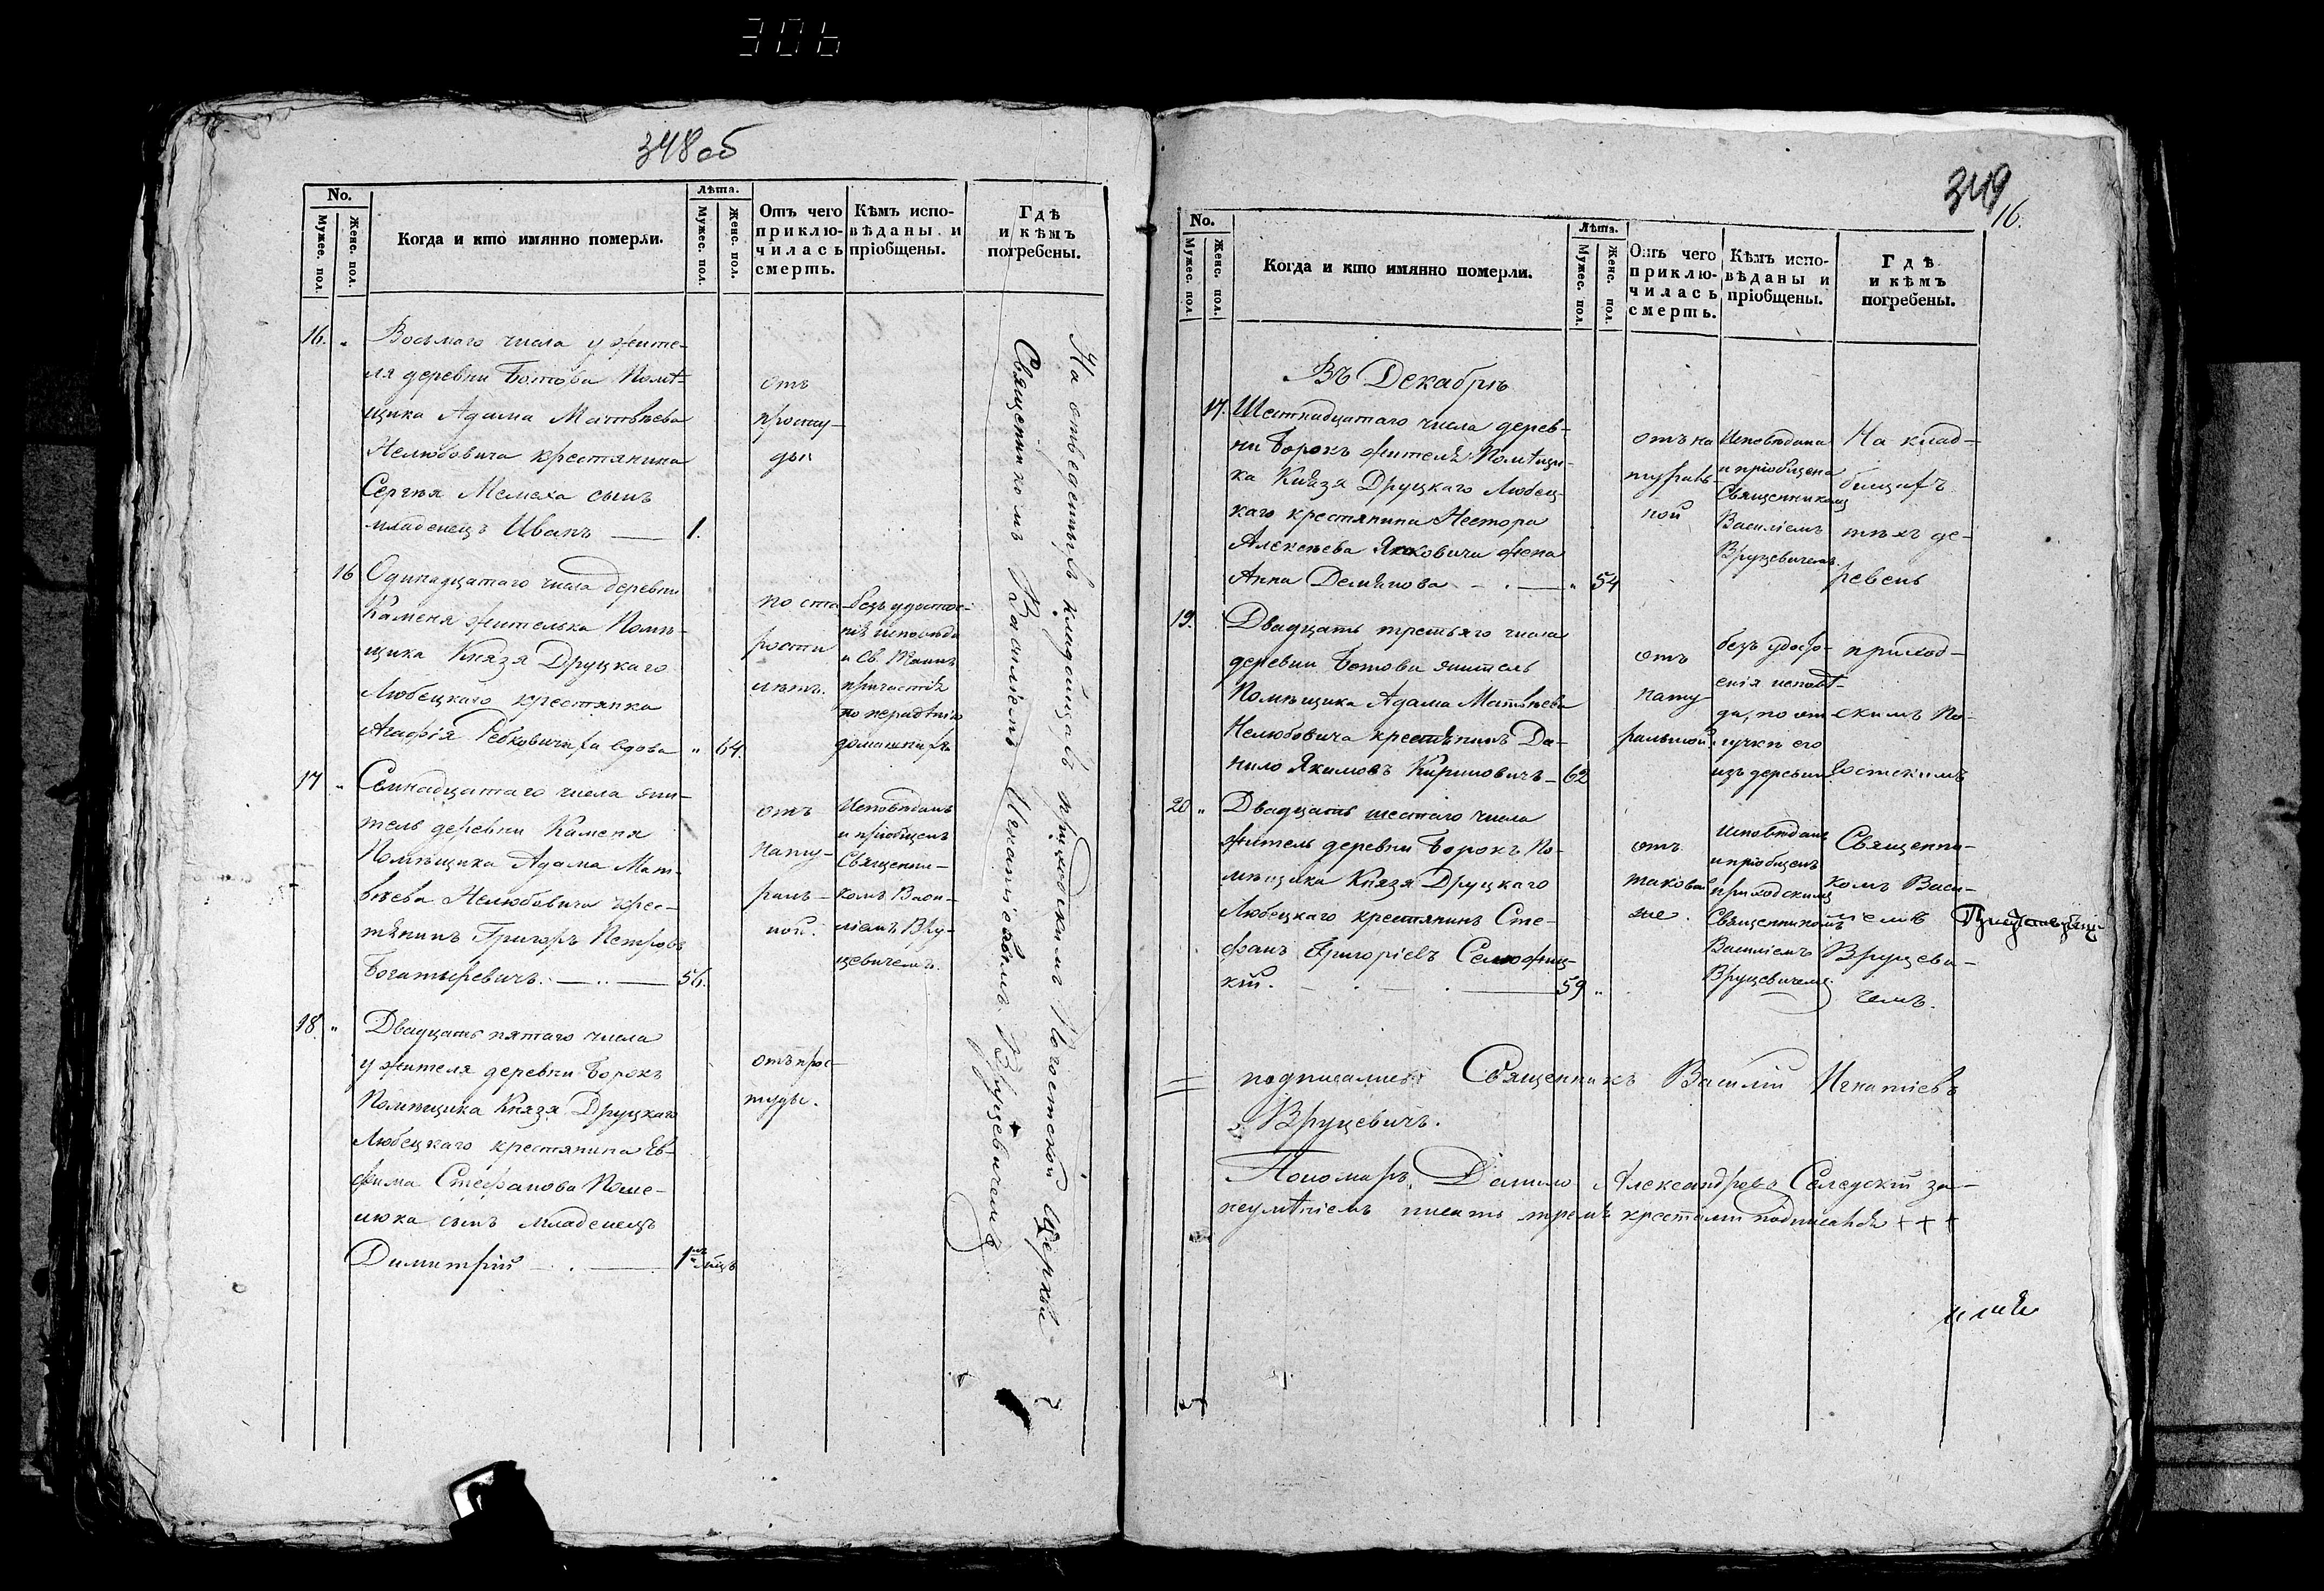 306
348 об
No.
Мужес. пол.
Женс. пол.
Когда и кто имянно померли.
Лѣта.
Мужес. пол.
Женс. пол.
Отъ чего
приклю-
чилась
смерть.
Кѣмъ испо-
вѣданы и
пріобщены.
Гдѣ
и кѣмъ
погребены.
16. „ Восьмаго числа у жите-
ля деревни Ботова Помѣ-
щика Адама Матвѣева
Нелюбовича крестянина
Сергѣя сынъ
младенецъ Иванъ — 1.
отъ
просту-
ды
16 Одинадцатаго числа деревни
Каменя жителька Помѣ-
щика Князя Друцкаго
Любецкаго крестянка
Агафія вдова „ 64.
по ста
рости
лѣтъ.
безъ удостое-
нія исповѣди
и Св. Таинъ
причастія
по нерадѣнію
домашнихъ
17 „ Семнадцатаго числа жи-
тель деревни Каменя
Помѣщика Адама Мат-
вѣева Нелюбовича крес-
тянинъ Григоръ Петровъ
Богатыревичъ. — 56.
отъ
нату-
раль-
ной.
Исповѣданъ
и пріобщенъ
Священни-
комъ Васи-
ліемъ Вру-
цевичемъ.
18. „ Двадцать пятаго числа
у жителя деревни Борокъ
Помѣщика Князя Друцкаго
Любецкаго крестянина Ев-
фима Стефанова Поме-
люка сынъ младенецъ
Димитрій — 1 мсцъ
отъ прос-
туды.
На отведенныхъ кладбищахъ приходскимъ Погостской Церкви
Священникомъ Василіемъ Игнатіевымъ Вруцевичемъ
349
16.
No.
Мужес. пол.
Женс. пол.
Когда и кто имянно померли.
Лѣта.
Мужес. пол.
Женс. пол.
Отъ чего
приклю-
чилась
смерть.
Кѣмъ испо-
вѣданы и
пріобщены.
Гдѣ
и кѣмъ
погребены.
Въ Декабрѣ
17. Шестнадцатаго числа дерев-
ни Борокъ жителя Помѣщи-
ка Князя Друцкаго Любец-
каго крестянина Нестора
Алексѣева Яковича жена
Анна Демянова — „ 54
отъ на
тураль-
ной
Исповѣдана
и пріобщена
Священникомъ
Василіемъ
Вруцевичемъ.
На клад-
бищахъ
тѣхъ де-
ревень
19. Двадцать третьяго числа
деревни Ботова житель
Помѣщика Адама Матвѣева
Нелюбовича крестянинъ Да-
нило Якимовъ Кириловичъ — 62
отъ
нату
ральной
безъ удосто-
енія исповѣ-
ди, по от
лучки его
изъ деревни
приход-
скимъ По-
гостскимъ
20 „ Двадцать шестаго числа
житель деревни Борокъ По-
мѣщика Князя Друцкаго
Любецкаго крестянинъ Сте-
фанъ Григоріевъ
кій. — 59 „
отъ
таковой
же.
Исповѣданъ
и пріобщенъ
приходскимъ
Священникомъ
Василіемъ
Вруцевичемъ.
Священни-
комъ Васи-
ліемъ
Вруцеви-
чемъ.
подписались: Священникъ Василій Игнатіевъ
Вруцевичъ.
Пономаръ Данило Александровъ за
неумѣніемъ писать тремя крестами подписался + + +